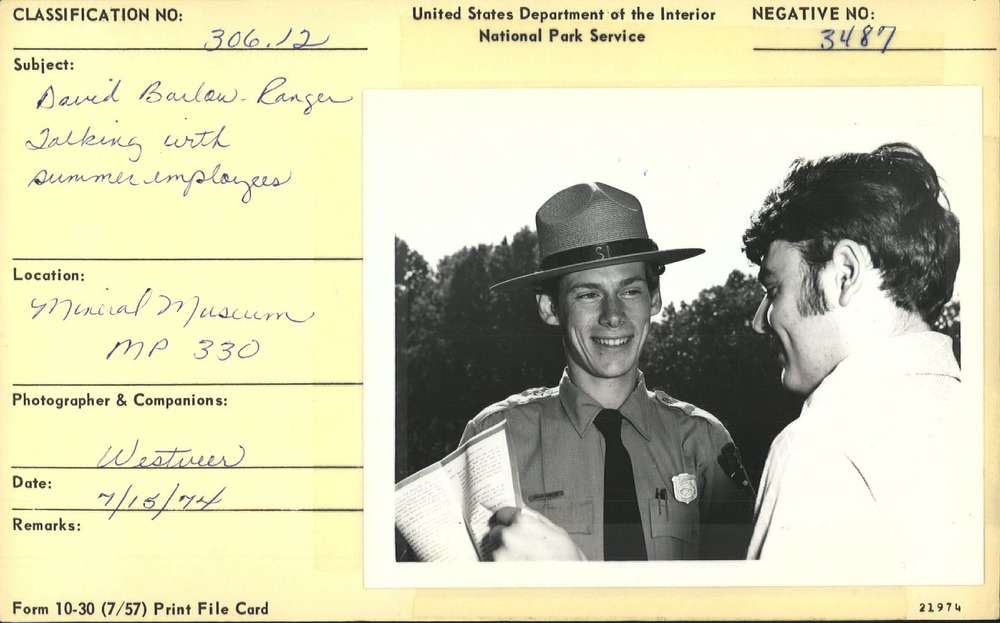 CLASSIFICATION NO:
306.12
United States Department of the Interior
National Park Service
NEGATIVE NO:
3487
Subject:
David Barlow - Ranger
Talking with
summer employees
Location:
Mineral Museum
MP 330
Photographer & Companions:
Westveer
Date:
7/15/74
Remarks:
Form 10-30 (7/57) Print File Card
21974